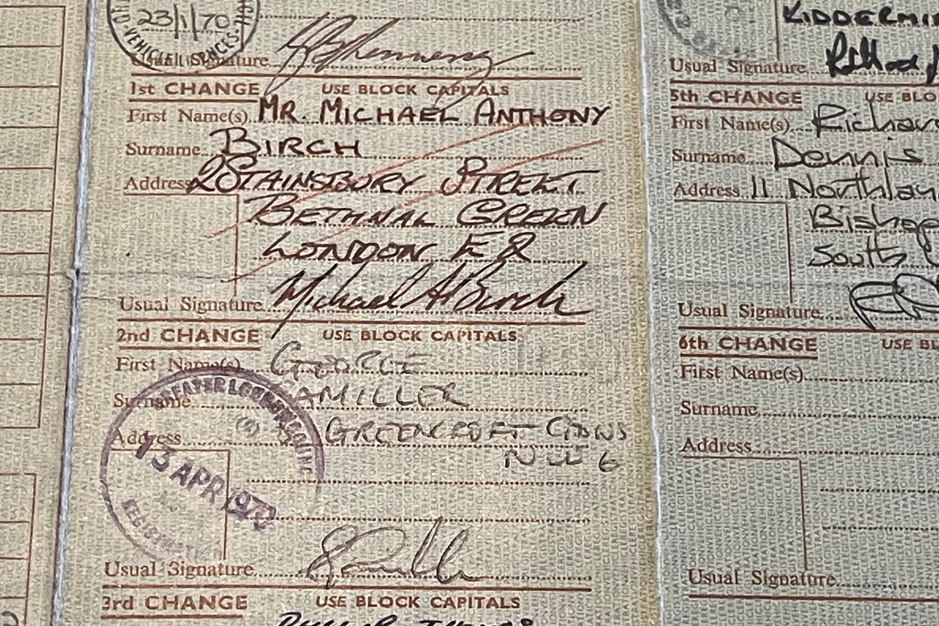 23/1/70
VEHICLE LICENCES
Usual Signature
1st CHANGE USE BLOCK CAPITALS
First Name(s) MR. MICHAEL ANTHONY
Surname BIRCH
Address 2 STAINSBURY STREET
BETHNAL GREEN
LONDON E2
Usual Signature Michael A Birch
2nd CHANGE USE BLOCK CAPITALS
First Name(s) GEORGE
Surname MILLER
Address GREENCROFT GDNS
NW 6
GREATER LONDON COUNCIL
13 APR 1973
REGISTRATION
Usual Signature
3rd CHANGE USE BLOCK CAPITALS
KIDDERMI
Usual Signature
5th CHANGE USE BLO
First Name(s) Richar
Surname Dennis
Address 11 Northla
Bishop
South
Usual Signature
6th CHANGE USE BL
First Name(s)
Surname
Address
Usual Signature